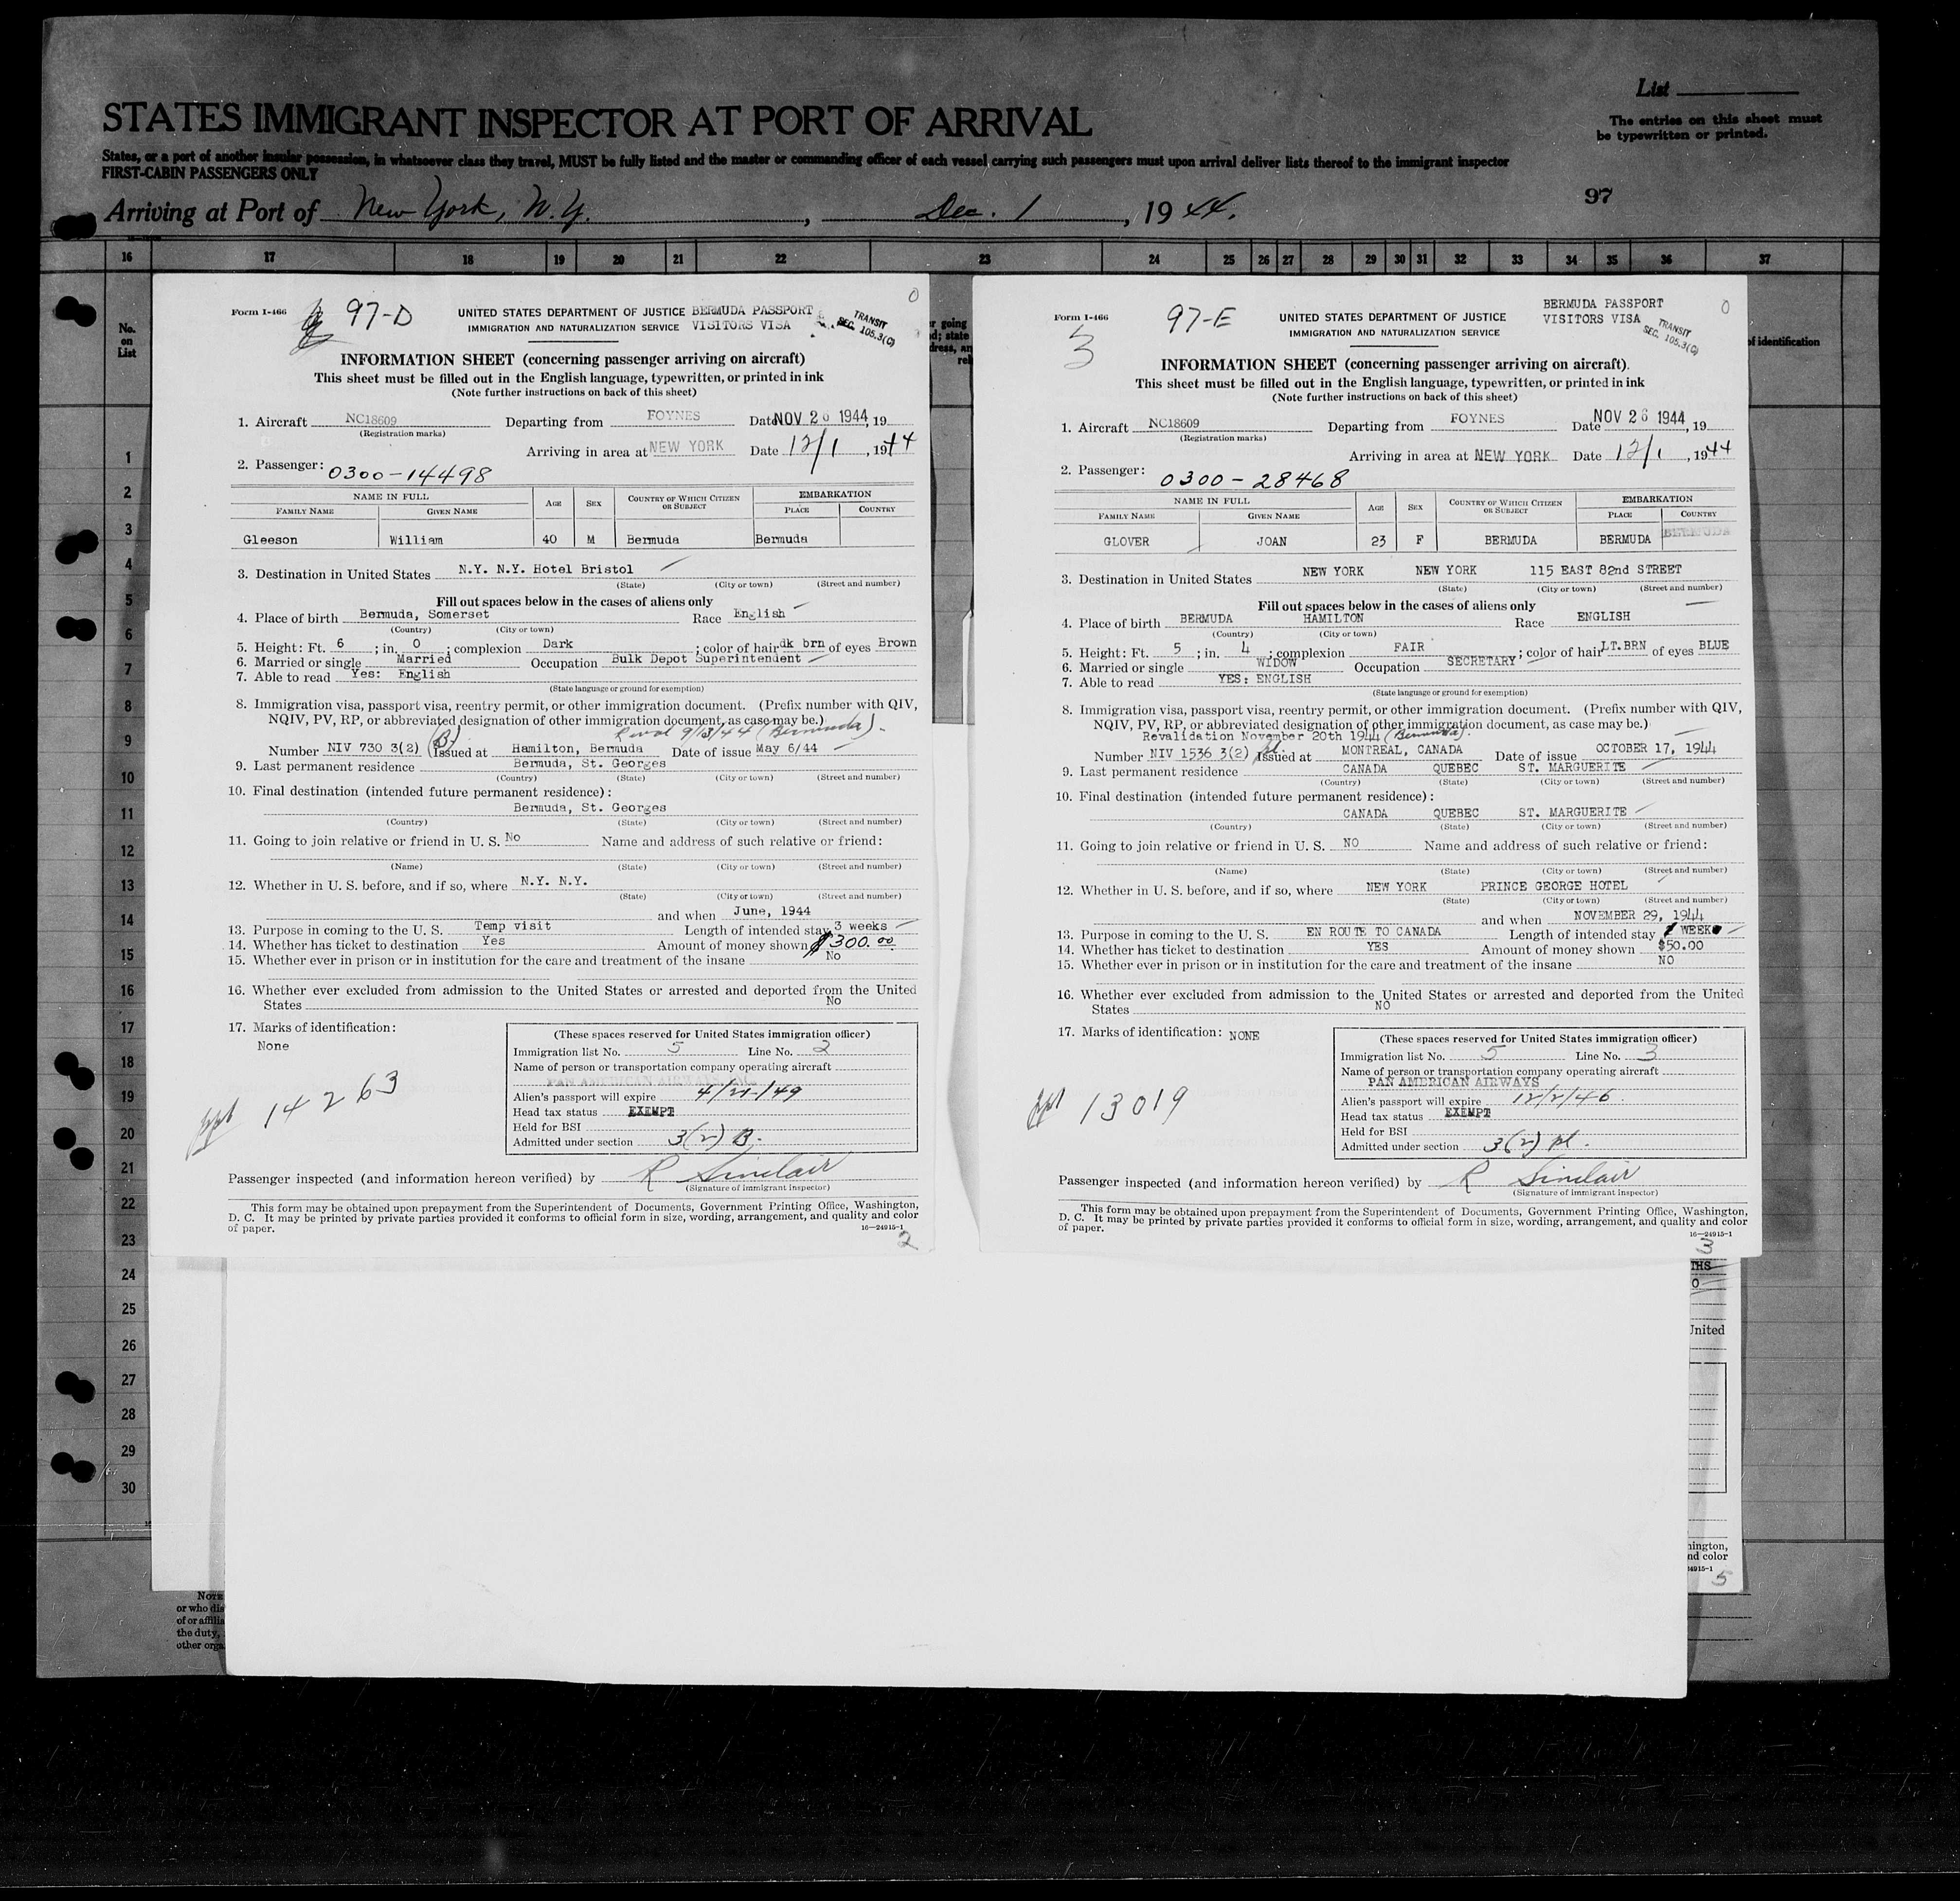 List
STATES IMMIGRANT INSPECTOR AT PORT OF ARRIVAL
The entries on this sheet must
be typewritten or printed.
States, or a port of another insular possession, in whatsoever class they travel, MUST be fully listed and the master or commanding officer of each vessel carrying such passengers must upon arrival deliver lists thereof to the immigrant inspector
FIRST-CABIN PASSENGERS ONLY
97
Arriving at Port of New York, N.Y., Dec. 1, 1944.
16 17 18 19 20 21 22 23 24 25 26 27 28 29 30 31 32 33 34 35 36 37
No.
on
List
of identification
1
2
3
4
5
6
7
8
9
10
11
12
13
14
15
16
17
18
19
20
21
22
23
24
25
26
27
28
29
30
Form I-466
97-D
0
UNITED STATES DEPARTMENT OF JUSTICE BERMUDA PASSPORT
IMMIGRATION AND NATURALIZATION SERVICE VISITORS VISA
TRANSIT
SEC. 105.3(C)
INFORMATION SHEET (concerning passenger arriving on aircraft)
This sheet must be filled out in the English language, typewritten, or printed in ink
(Note further instructions on back of this sheet)
1. Aircraft NC18609 Departing from FOYNES Date NOV 26 1944, 19
(Registration marks)
Arriving in area at NEW YORK Date 12/1, 1944
2. Passenger: 0300-14498
NAME IN FULL AGE SEX COUNTRY OF WHICH CITIZEN OR SUBJECT EMBARKATION
FAMILY NAME GIVEN NAME PLACE COUNTRY
Gleeson William 40 M Bermuda Bermuda
3. Destination in United States N.Y. N.Y. Hotel Bristol
(State) (City or town) (Street and number)
Fill out spaces below in the cases of aliens only
4. Place of birth Bermuda, Somerset Race English
(Country) (City or town)
5. Height: Ft. 6; in. 0; complexion Dark; color of hair dk brn of eyes Brown
6. Married or single Married Occupation Bulk Depot Superintendent
7. Able to read Yes: English
(State language or ground for exemption)
8. Immigration visa, passport visa, reentry permit, or other immigration document. (Prefix number with QIV,
NQIV, PV, RP, or abbreviated designation of other immigration document, as case may be.)
9/13/44 (Bermuda)
Number NIV 730 3(2) (B) Issued at Hamilton, Bermuda Date of issue May 6/44
9. Last permanent residence Bermuda, St. Georges
(Country) (State) (City or town) (Street and number)
10. Final destination (intended future permanent residence):
Bermuda, St. Georges
(Country) (State) (City or town) (Street and number)
11. Going to join relative or friend in U. S. No Name and address of such relative or friend:
(Name) (State) (City or town) (Street and number)
12. Whether in U. S. before, and if so, where N.Y. N.Y.
(State) (City or town) (Street and number)
and when June, 1944
13. Purpose in coming to the U. S. Temp visit Length of intended stay 3 weeks
14. Whether has ticket to destination Yes Amount of money shown $300.00
15. Whether ever in prison or in institution for the care and treatment of the insane No
16. Whether ever excluded from admission to the United States or arrested and deported from the United
States No
17. Marks of identification:
None
14263
(These spaces reserved for United States immigration officer)
Immigration list No. 5 Line No. 2
Name of person or transportation company operating aircraft
PAN AMERICAN AIRWAYS INC.
Alien's passport will expire 4/21/49
Head tax status EXEMPT
Held for BSI
Admitted under section 3(2) B.
Passenger inspected (and information hereon verified) by R Sinclair
(Signature of immigrant inspector)
This form may be obtained upon prepayment from the Superintendent of Documents, Government Printing Office, Washington,
D. C. It may be printed by private parties provided it conforms to official form in size, wording, arrangement, and quality and color
of paper.
16—24915-1
2
Form I-466
97-E
3
BERMUDA PASSPORT
VISITORS VISA
0
UNITED STATES DEPARTMENT OF JUSTICE
IMMIGRATION AND NATURALIZATION SERVICE
TRANSIT
SEC. 105.3(C)
INFORMATION SHEET (concerning passenger arriving on aircraft).
This sheet must be filled out in the English language, typewritten, or printed in ink
(Note further instructions on back of this sheet)
1. Aircraft NC18609 Departing from FOYNES Date NOV 26 1944, 19
(Registration marks)
Arriving in area at NEW YORK Date 12/1, 1944
2. Passenger: 0300-28468
NAME IN FULL AGE SEX COUNTRY OF WHICH CITIZEN OR SUBJECT EMBARKATION
FAMILY NAME GIVEN NAME PLACE COUNTRY
GLOVER JOAN 23 F BERMUDA BERMUDA BERMUDA
3. Destination in United States NEW YORK NEW YORK 115 EAST 82nd STREET
(State) (City or town) (Street and number)
Fill out spaces below in the cases of aliens only
4. Place of birth BERMUDA HAMILTON Race ENGLISH
(Country) (City or town)
5. Height: Ft. 5; in. 4; complexion FAIR; color of hair LT.BRN of eyes BLUE
6. Married or single WIDOW Occupation SECRETARY
7. Able to read YES: ENGLISH
(State language or ground for exemption)
8. Immigration visa, passport visa, reentry permit, or other immigration document. (Prefix number with QIV,
NQIV, PV, RP, or abbreviated designation of other immigration document, as case may be.)
Revalidation November 20th 1944 (Bermuda).
Number NIV 1536 3(2) pl. Issued at MONTREAL, CANADA Date of issue OCTOBER 17, 1944
9. Last permanent residence CANADA QUEBEC ST. MARGUERITE
(Country) (State) (City or town) (Street and number)
10. Final destination (intended future permanent residence):
CANADA QUEBEC ST. MARGUERITE
(Country) (State) (City or town) (Street and number)
11. Going to join relative or friend in U. S. NO Name and address of such relative or friend:
(Name) (State) (City or town) (Street and number)
12. Whether in U. S. before, and if so, where NEW YORK PRINCE GEORGE HOTEL
(State) (City or town) (Street and number)
and when NOVEMBER 29, 1944
13. Purpose in coming to the U. S. EN ROUTE TO CANADA Length of intended stay 1 WEEK
14. Whether has ticket to destination YES Amount of money shown $50.00
15. Whether ever in prison or in institution for the care and treatment of the insane NO
16. Whether ever excluded from admission to the United States or arrested and deported from the United
States NO
17. Marks of identification: NONE
13019
(These spaces reserved for United States immigration officer)
Immigration list No. 5 Line No. 3
Name of person or transportation company operating aircraft
PAN AMERICAN AIRWAYS
Alien's passport will expire 12/2/46.
Head tax status EXEMPT
Held for BSI
Admitted under section 3(2) pl.
Passenger inspected (and information hereon verified) by R Sinclair
(Signature of immigrant inspector)
This form may be obtained upon prepayment from the Superintendent of Documents, Government Printing Office, Washington,
D. C. It may be printed by private parties provided it conforms to official form in size, wording, arrangement, and quality and color
of paper.
16—24915-1
3
THS
O
United
nd color
24915-1
5
NOTE
or who dis
of or affilia
the duty,
other orga